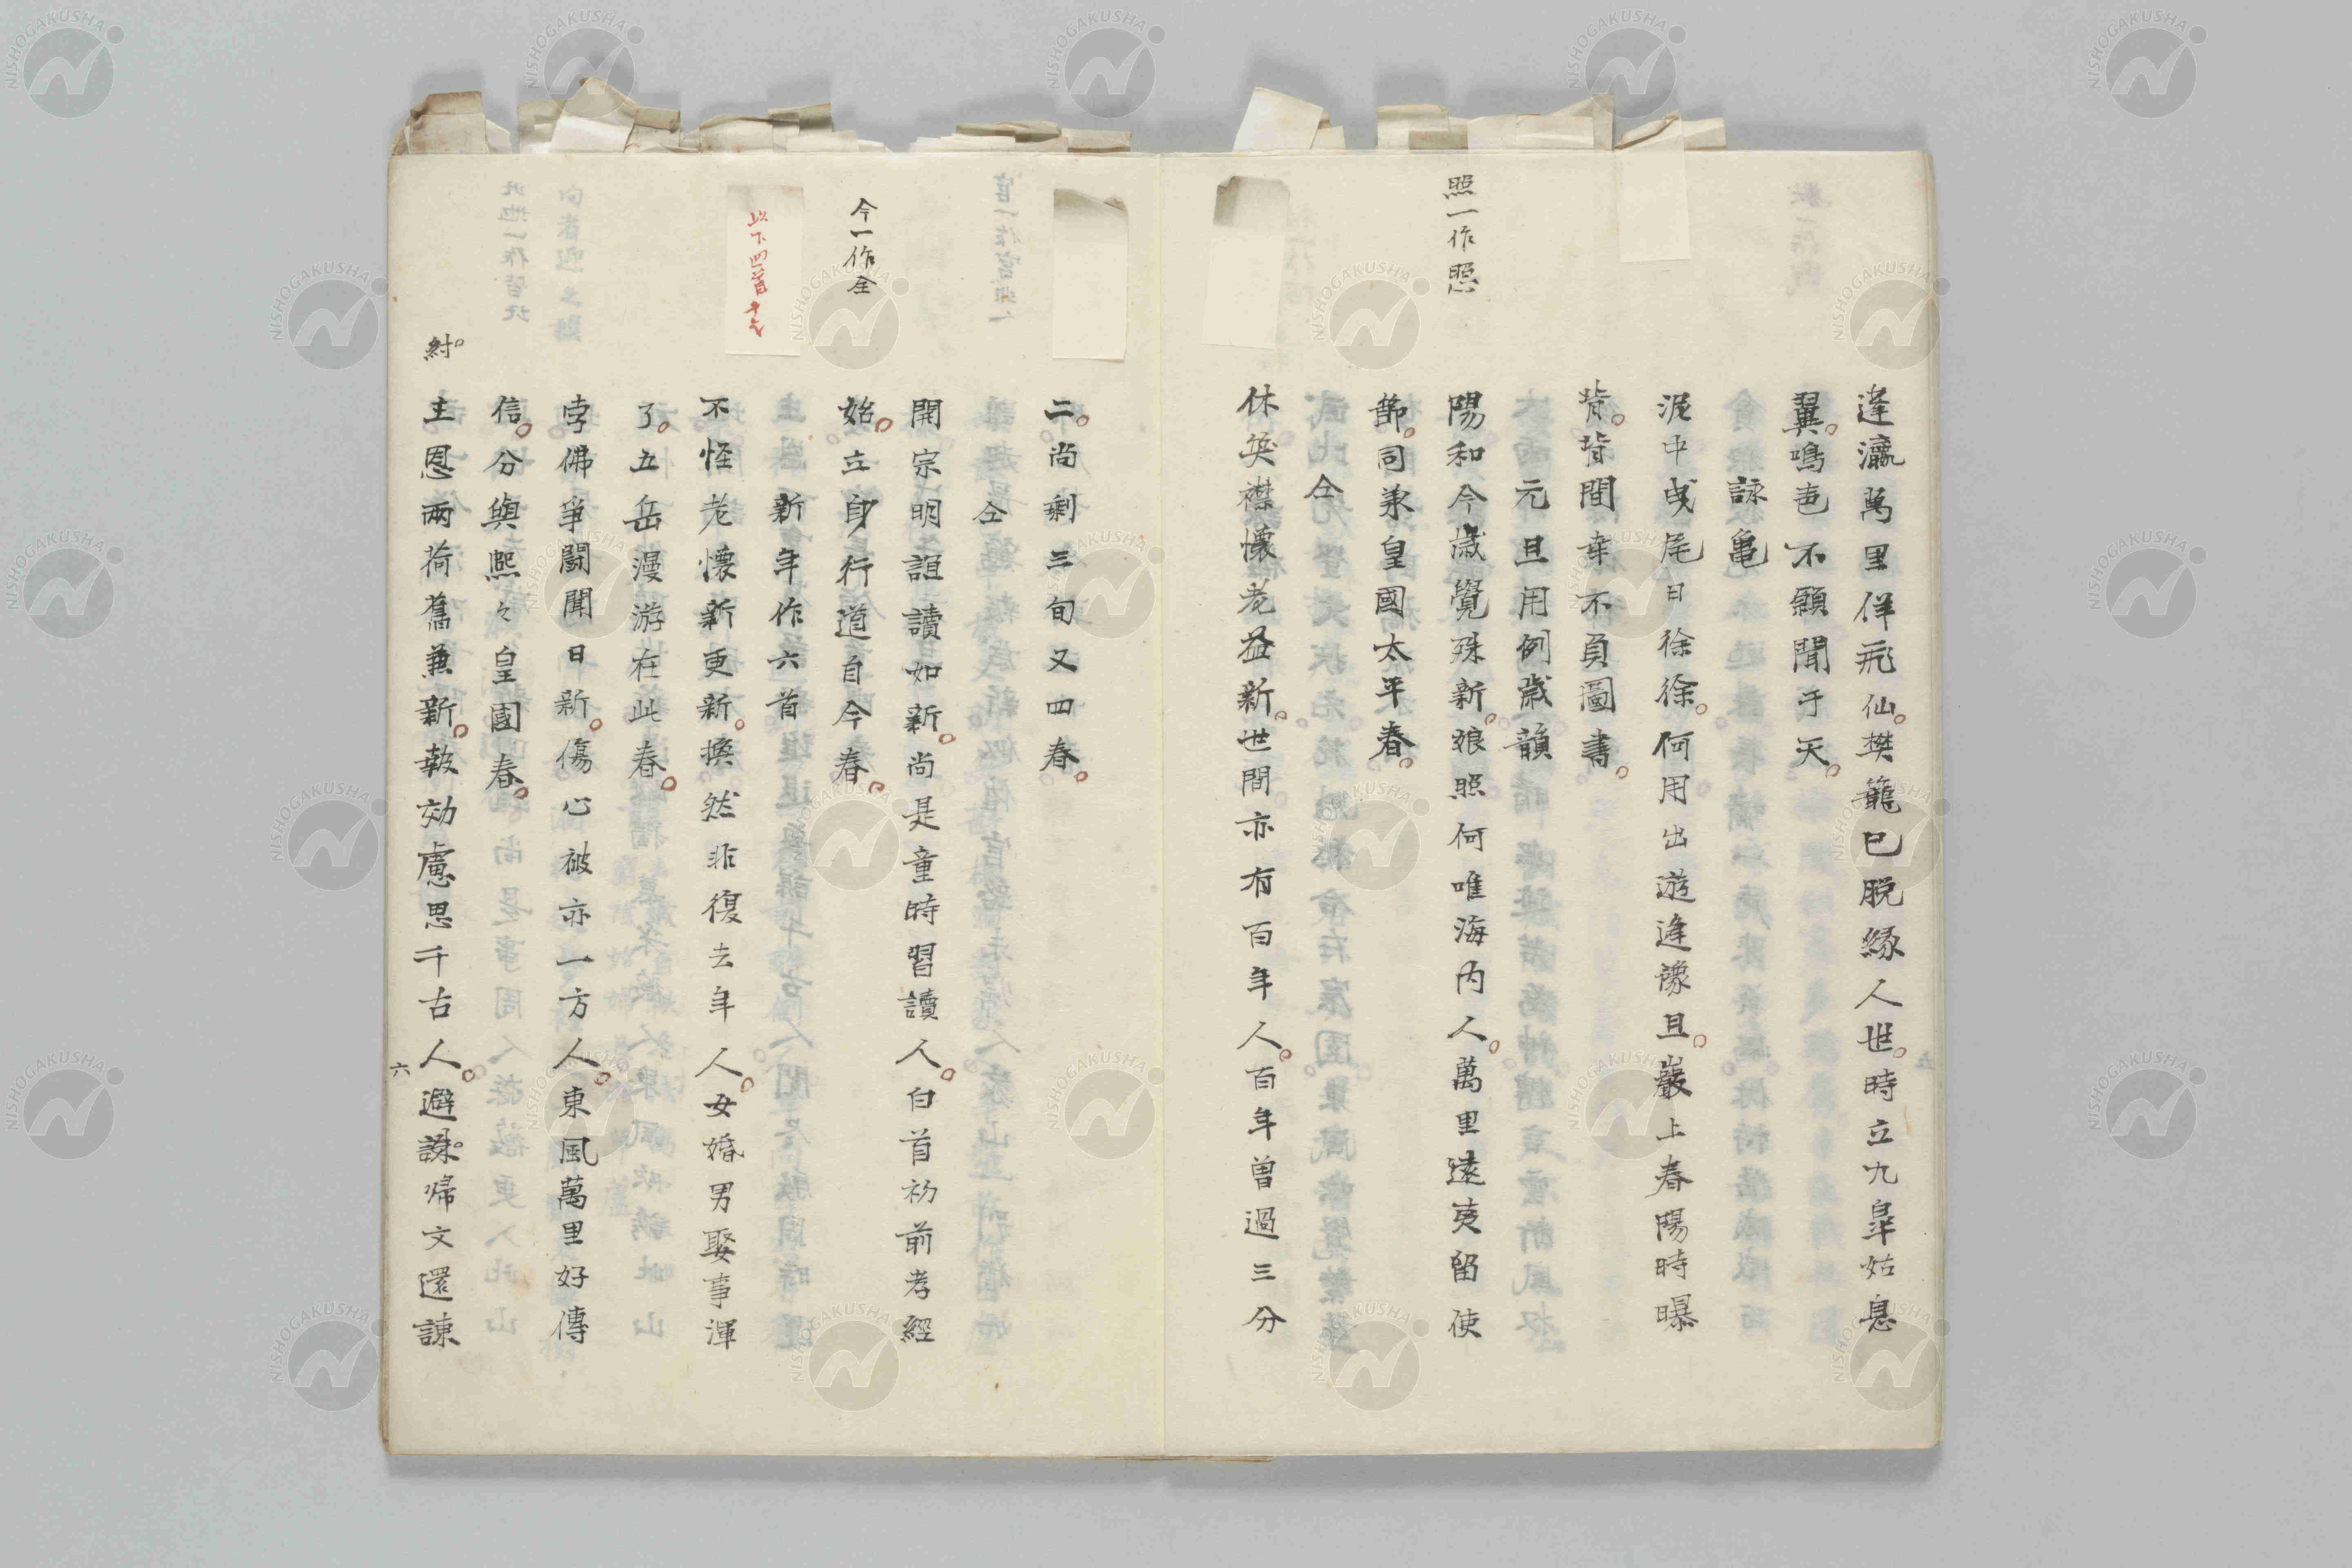 照一作㷖
逢瀛萬里伴飛仙。樊籠已脱緣人世。時立九皐姑息
翼。鳴声不願聞于天。
詠亀
泥中曳尾日徐徐。何用出遊逢豫且。巖上春陽時曝
背。背間幸不負圖書。
元旦用例歳韻
陽和今歳覺殊新。娘照何唯海内人。萬里遠夷留使
節。同來皇國太平春。
仝
休英襟懷老益新。世間亦有百年人。百年曽過三分
二。尚剩三旬又四春。
仝
今一作全
開宗明誼讀如新。尚是童時習讀人。白首初前孝經
始。立身行道自今春。
新年作六首
以下四首
不怪老懐新更新。換然非復去年人。女婚男娶事渾
了。五岳漫游在此春。
孛佛爭闘聞日新。傷心被亦一方人。東風萬里好傳
信。分與熙々皇國春。
紂。
主恩兩荷舊兼新。報効慮思千古人。避諌歸文還諌
六
NISHOGAKUSHA